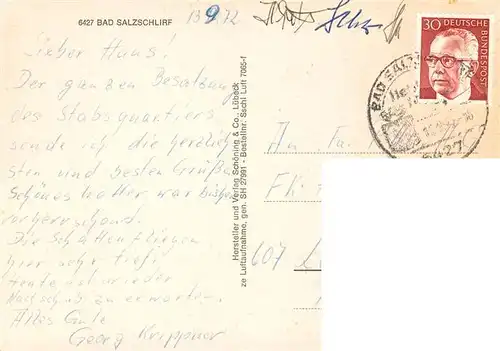 6427 BAD SALZSCHLIRF
13.9.72
30 DEUTSCHE BUNDESPOST
Lieber Hans!
Der ganzen Besatzung
des Stabsquartiers
sende ich die herzlich-
sten und besten Grüße.
Schönes Wetter war bisher
vorherrschend.
Die Schatten fliegen
hier sehr tief.
Heute ist wieder
Nachschub zu erwarten.
Alles Gute
Georg Krippner
Hersteller und Verlag Schöning & Co., Lübeck
ze Luftaufnahme, gen. SH 27991 - Bestellnr. Sschl Luft 7005-f
An Fa.
607
6427